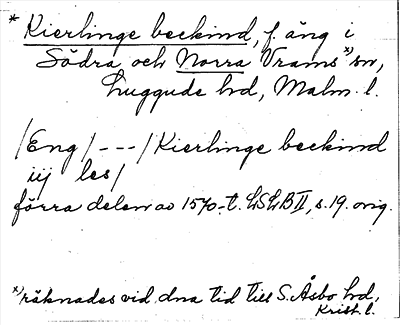 * Kierlinge beckind, f. äng i
Södra och Norra Vrams x) sn,
Luggude hd, Malm. l.
/Eng/ - - - /Kierlinge beckind
iij les/
förra delen av 1570-t. LSLB II, s. 19. orig.
x) räknades vid dna tid till S. Åsbo hd,
Krist. l.